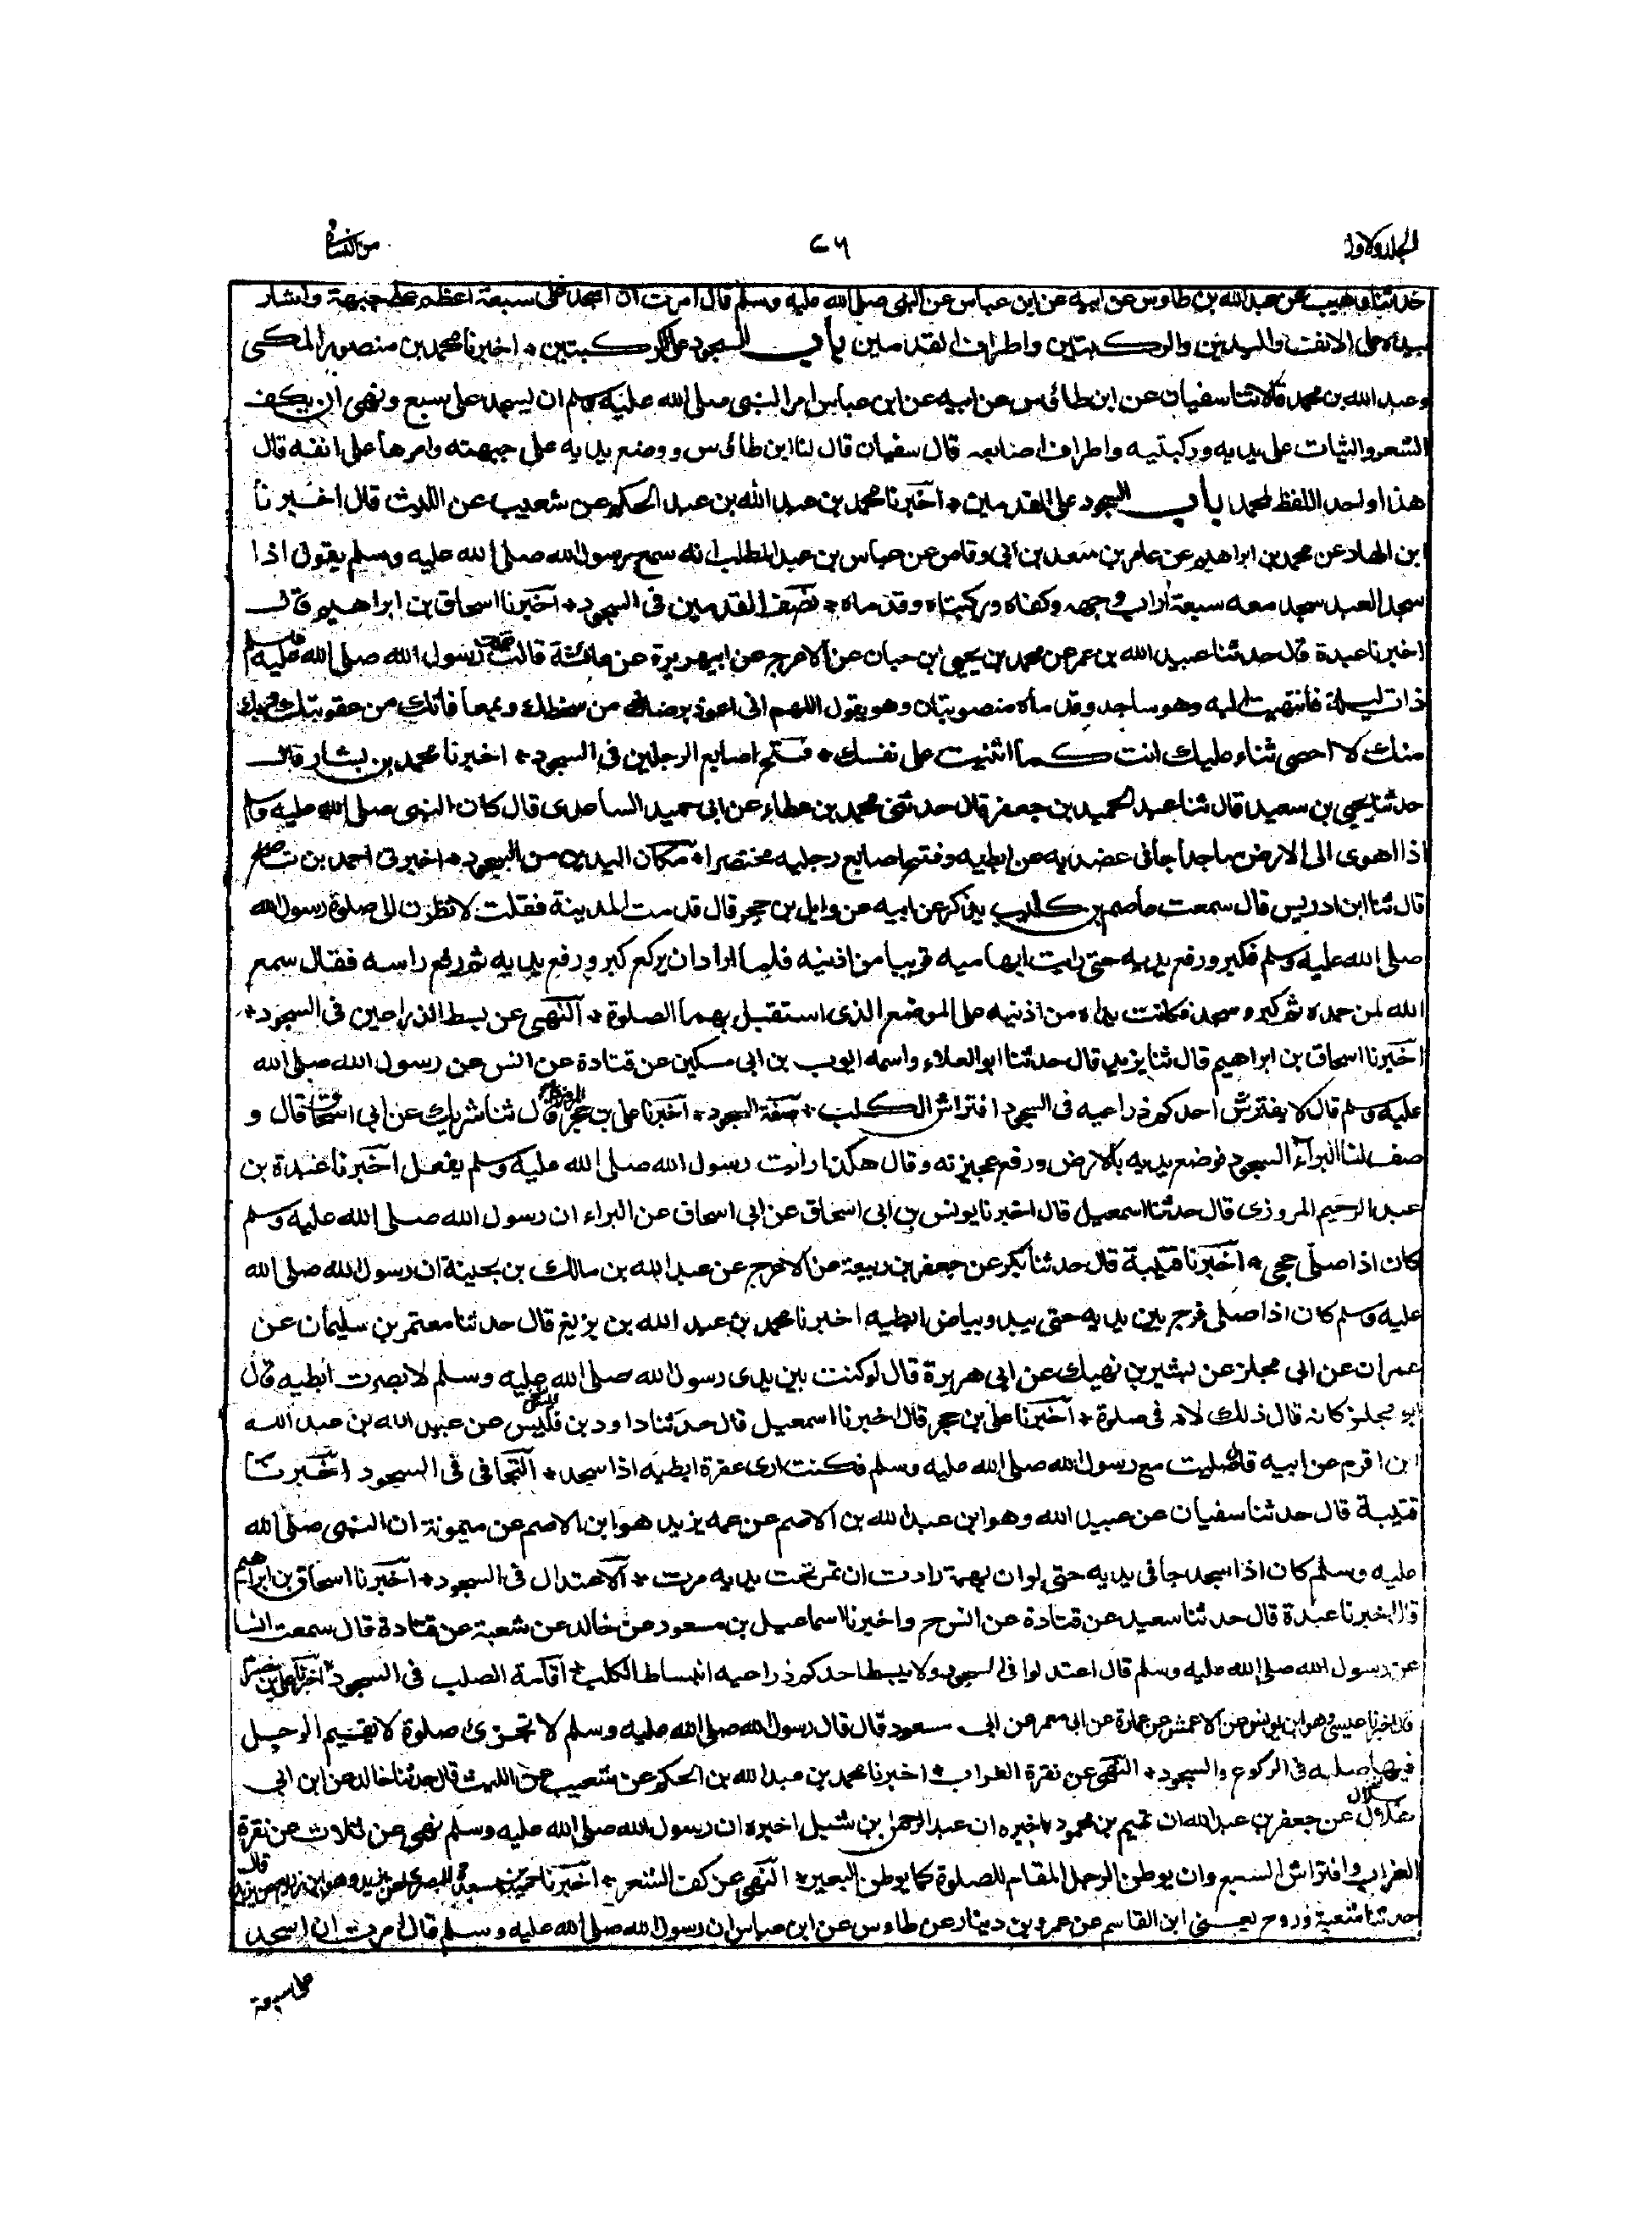 المجلد الاول
٧٦
من النسائى
حدثنا وهيب عن عبد الله بن طاوس عن ابيه عن ابن عباس عن النبى صلى الله عليه وسلم قال امرت ان اسجد على سبعة اعظم على جبهة واشار
بيده على الانف واليدين والركبتين واطراف القدمين باب السجود على الركبتين * اخبرنا محمد بن منصور المكى
وعبد الله بن محمد قالا ثنا سفيان عن ابن طاؤس عن ابيه عن ابن عباس امر النبى صلى الله عليه وسلم ان يسجد على سبع ونهى ان يكف
الشعر والثياب على يديه وركبتيه واطراف اصابعه قال سفيان قال لنا ابن طاؤس ووضع يديه على جبهته وامرها على انفه قال
هذا واحد اللفظ لمحمد باب السجود على القدمين * اخبرنا محمد بن عبد الله بن عبد الحكم عن شعيب عن الليث قال اخبرنا
ابن الهاد عن محمد بن ابراهيم عن عامر بن سعد بن ابى وقاص عن عباس بن عبد المطلب انه سمع رسول الله صلى الله عليه وسلم يقول اذا
سجد العبد سجد معه سبعة اٰراب وجهه وكفاه وركبتاه وقدماه * نصب القدمين فى السجود * اخبرنا اسحاق بن ابراهيم قال
اخبرنا عبدة قال حدثنا عبيد الله بن عمر عن محمد بن يحيى ابن حبان عن الاعرج عن ابى هريرة عن عائشة قالت فقدت رسول الله صلى الله عليه وسلم
ذات ليلة فانتهيت اليه وهو ساجد وقدماه منصوبتان وهو يقول اللهم انى اعوذ برضاك من سخطك وبمعافاتك من عقوبتك وبك
منك لا احصى ثناء عليك انت كما اثنيت على نفسك * فتح اصابع الرجلين فى السجود * اخبرنا محمد بن بشار قال
حدثنا يحيى بن سعيد قال ثنا عبد الحميد بن جعفر قال حدثنى محمد بن عطاء عن ابى حميد الساعدى قال كان النبى صلى الله عليه وسلم
اذا اهوى الى الارض ساجدا جافى عضديه عن ابطيه وفتح اصابع رجليه مختصرا * مكان اليدين من السجود * اخبرنى احمد بن ناصح
قال ثنا ابن ادريس قال سمعت عاصم بن كليب يذكر عن ابيه عن وايل بن حجر قال قدمت المدينة فقلت لانظرن الى صلوة رسول الله
صلى الله عليه وسلم فكبر ورفع يديه حتى رايت ابهاميه قريبا من اذنيه فلما اراد ان يركع كبر ورفع يديه ثم رفع راسه فقال سمع
الله لمن حمده ثم كبر وسجد فكانت يداه من اذنيه على الموضع الذى استقبل بهما الصلوة * النهى عن بسط الذراعين فى السجود *
اخبرنا اسحاق بن ابراهيم قال ثنا يزيد قال حدثنا ابو العلاء واسمه ايوب بن ابى مسكين عن قتادة عن انس عن رسول الله صلى الله
عليه وسلم قال لا يفترش احدكم ذراعيه فى السجود افتراش الكلب * صفة السجود * اخبرنا على بن حجر المروزى قال ثنا شريك عن ابى اسحاق قال و
صف لنا البراء السجود فوضع يديه بالارض ورفع عجيزته وقال هكذا رايت رسول الله صلى الله عليه وسلم يفعل اخبرنا عبدة بن
عبد الرحيم المروزى قال حدثنا اسمعيل قال اخبرنا يونس بن ابى اسحاق عن ابى اسحاق عن البراء ان رسول الله صلى الله عليه وسلم
كان اذا صلى جخى * اخبرنا قتيبة قال حدثنا بكر عن جعفر بن ربيعة عن الاعرج عن عبد الله بن مالك بن بحينة ان رسول الله صلى الله
عليه وسلم كان اذا صلى فرج بين يديه حتى يبدو بياض ابطيه اخبرنا محمد بن عبد الله بن بزيغ قال حدثنا معتمر بن سليمان عن
عمران عن ابى مجلز عن بشير بن نهيك عن ابى هريرة قال لو كنت بين يدى رسول الله صلى الله عليه وسلم لابصرت ابطيه قال
ابو مجلز كانه قال ذلك لانه فى صلوة * اخبرنا على بن حجر قال اخبرنا اسمعيل قال حدثنا داود بن قيس عن عبيد الله بن عبد الله
ابن اقرم عن ابيه قال صليت مع رسول الله صلى الله عليه وسلم فكنت ارى عفرة ابطيه اذا سجد * التجافى فى السجود اخبرنا
قتيبة قال حدثنا سفيان عن عبيد الله وهو ابن عبد الله بن الاصم عن عمه يزيد هو ابن الاصم عن ميمونة ان النبى صلى الله
عليه وسلم كان اذا سجد جافى يديه حتى لو ان بهمة ارادت ان تمر تحت يديه مرت * الاعتدال فى السجود * اخبرنا اسحاق بن ابراهيم
قال اخبرنا عبدة قال حدثنا سعيد عن قتادة عن انس ح واخبرنا اسماعيل بن مسعود عن خالد عن شعبة عن قتادة قال سمعت انسا
عن رسول الله صلى الله عليه وسلم قال اعتدلوا فى السجود ولا يبسط احدكم ذراعيه انبساط الكلب * اقامة الصلب فى السجود * اخبرنا على بن خشرم
قال اخبرنا عيسى وهو ابن يونس عن الاعمش عن عمارة عن ابى معمر عن ابى مسعود قال قال رسول الله صلى الله عليه وسلم لا تجزئ صلوة لا يقيم الرجل
فيها صلبه فى الركوع والسجود * النهى عن نقرة الغراب * اخبرنا محمد بن عبد الله بن الحكم عن شعيب عن الليث قال حدثنا خالد عن ابن ابى
هلال عن جعفر بن عبد الله ان تميم بن محمود اخبره ان عبد الرحمن بن شبل اخبره ان رسول الله صلى الله عليه وسلم نهى عن ثلاث عن نقرة
الغراب وافتراش السبع وان يوطن الرجل المقام للصلوة كما يوطن البعير * النهى عن كف الشعر * اخبرنا حميد بن مسعدة البصرى عن يزيد وهو ابن زريع قال
حدثنا شعبة وروح يعنى ابن القاسم عن عمرو بن دينار عن طاوس عن ابن عباس ان رسول الله صلى الله عليه وسلم قال امرت ان اسجد
على سبعة